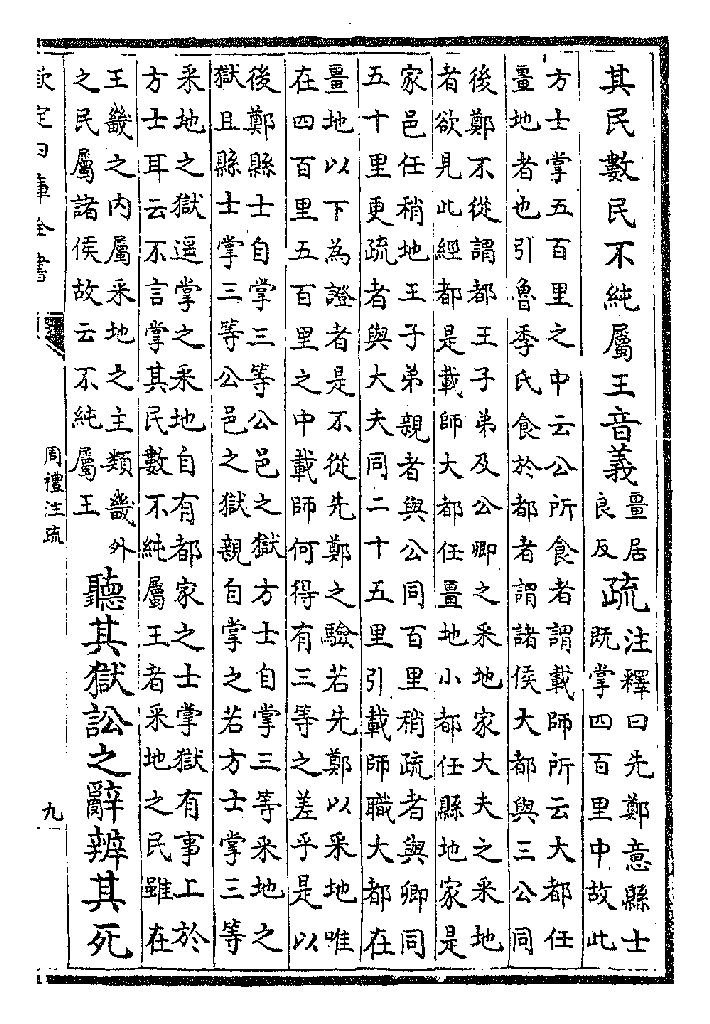 其民數民不純屬王音義疆居良反疏注釋曰先鄭意縣士既掌四百里中故此
方士掌五百里之中云公所食者謂載師所云大都任
疆地者也引魯季氏食於都者謂諸侯大都與三公同
後鄭不從謂都王子弟及公卿之采地家大夫之采地
者欲見此經都是載師大都任疆地小都任縣地家是
家邑任稍地王子弟親者與公同百里稍疏者與卿同
五十里更疏者與大夫同二十五里引載師職大都在
疆地以下為證者是不從先鄭之驗若先鄭以采地唯
在四百里五百里之中載師何得有三等之差乎是以
後鄭縣士自掌三等公邑之獄方士自掌三等采地之
獄且縣士掌三等公邑之獄親自掌之若方士掌三等
采地之獄遥掌之采地自有都家之士掌獄有事上於
方士耳云不言掌其民數不純屬王者采地之民雖在
王畿之内屬采地之主類畿外
之民屬諸侯故云不純屬王
聽其獄訟之辭辨其死
欽定四庫全書
周禮注疏
九